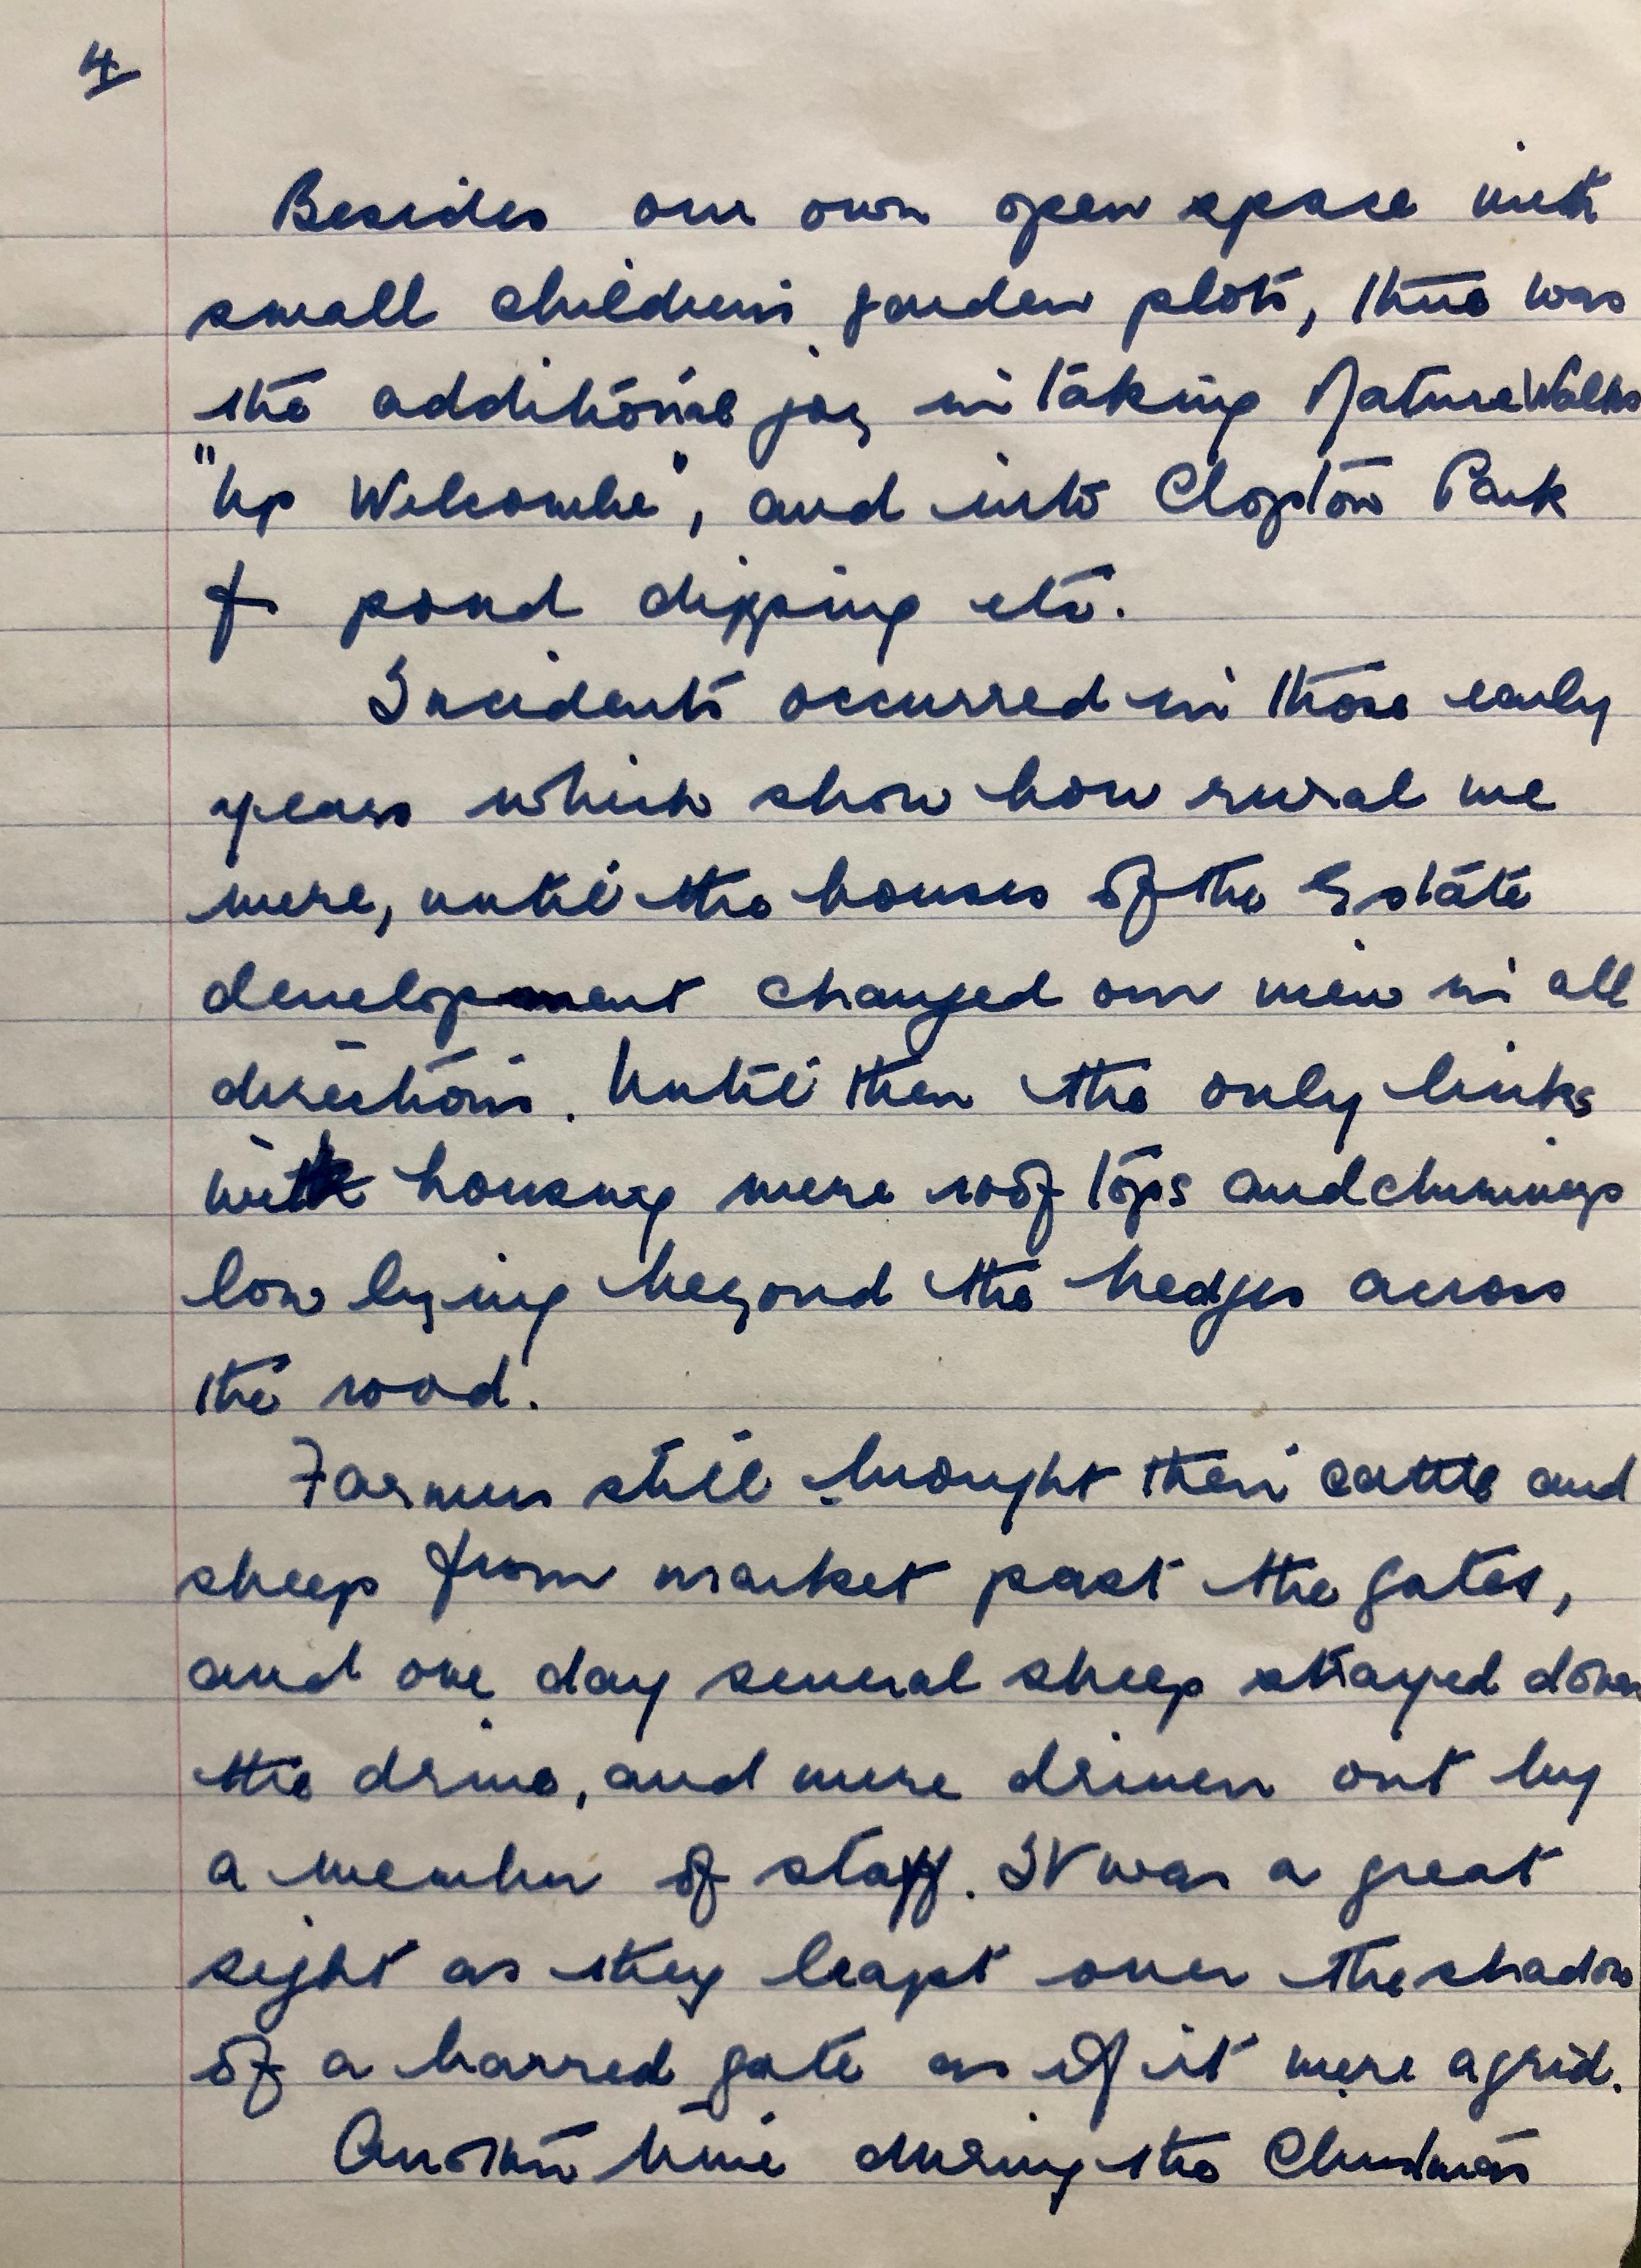 4
Besides our own open space with
small children's garden plots, there was
the additional joy in taking Nature Walks
"Up Welcombe", and into Clopton Park
& pond dipping etc.
Incidents occurred in those early
years which show how rural we
were, until the houses of the Estate
development changed our view in all
directions. Until then the only links
with housing were roof tops and chimneys
low lying beyond the hedges across
the road.
Farmers still brought their cattle and
sheep from market past the gates,
and one day several sheep strayed down
the drive, and were driven out by
a member of staff. It was a great
sight as they leapt over the shadow
of a barred gate as if it were a grid.
Another time during the Christmas